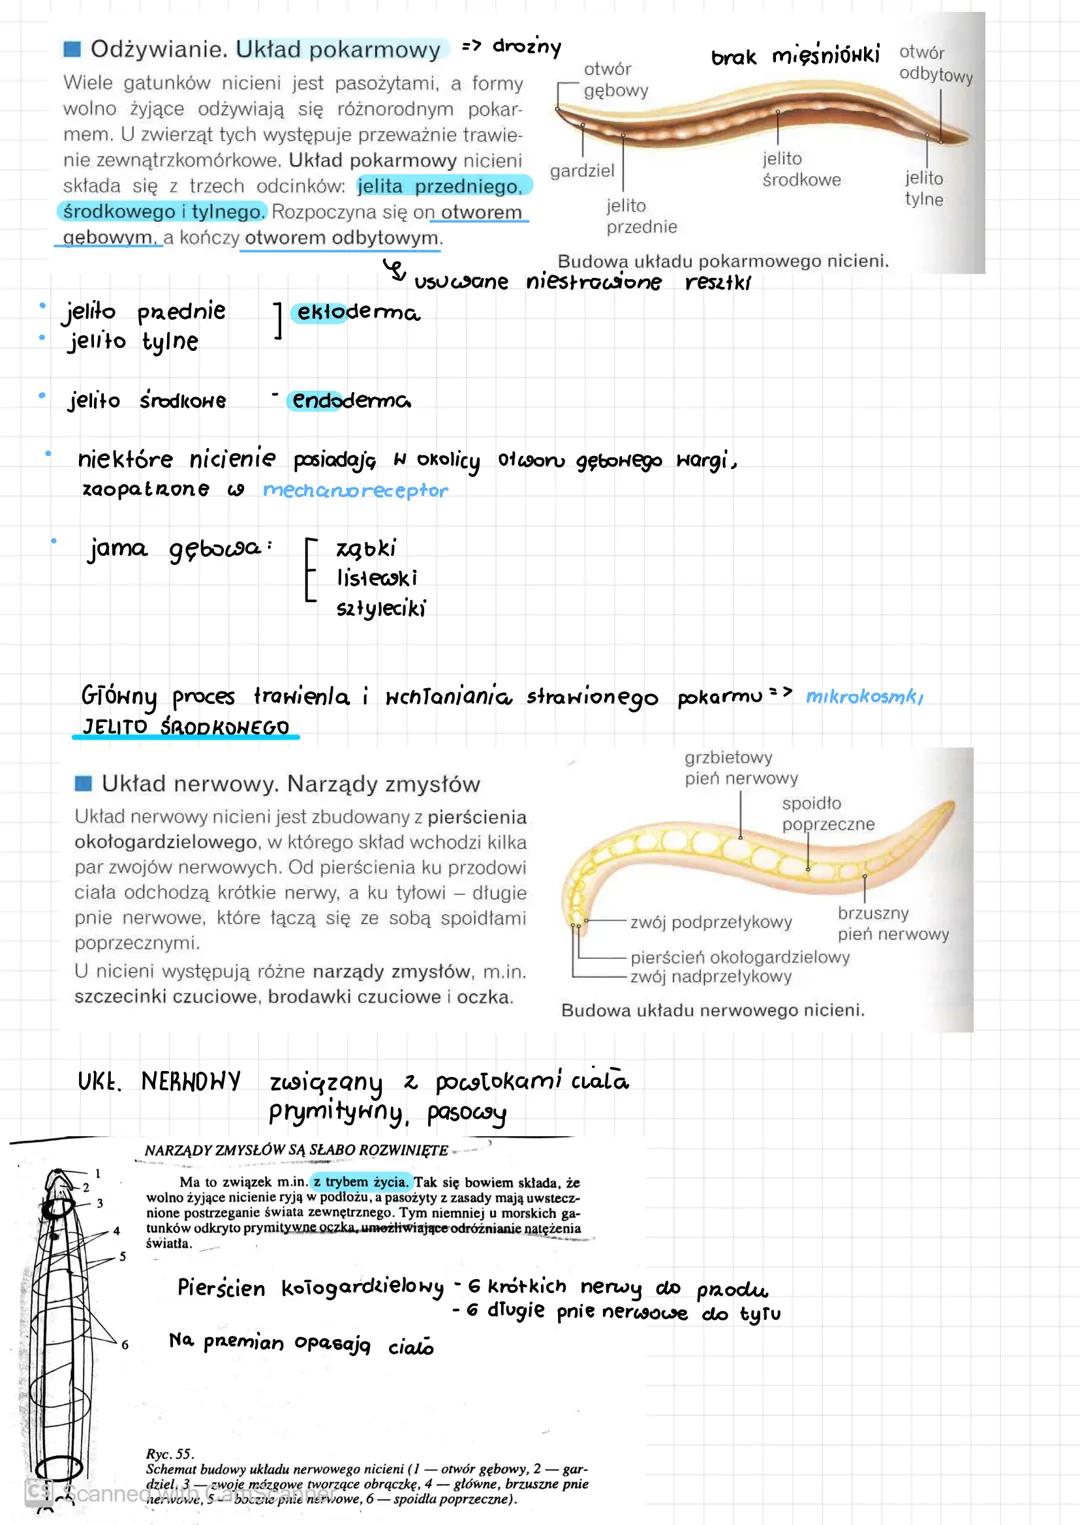 Odżywianie. Układ pokarmowy => drożny
Wiele gatunków nicieni jest pasożytami, a formy
wolno żyjące odżywiają się różnorodnym pokar-
mem. U zwierząt tych występuje przeważnie trawie-
nie zewnątrzkomórkowe. Układ pokarmowy nicieni
składa się z trzech odcinków: jelita przedniego,
środkowego i tylnego. Rozpoczyna się on otworem
gębowym, a kończy otworem odbytowym.
brak mięśniówki
otwór
gębowy
otwór
odbytowy
gardziel
jelito
przednie
jelito
środkowe
jelito
tylne
Budowa układu pokarmowego nicieni.
usuwane niestrawione resztki
• jelito przednie ] ektoderma
• jelito tylne
• jelito środkowe - endoderma
• niektóre nicienie posiadają w okolicy otworu gębowego wargi,
zaopatrzone w mechanoreceptor
• jama gębowa: [ ząbki
listewki
sztyleciki
Główny proces trawienia i wchłaniania strawionego pokarmu => mikrokosmki
JELITO ŚRODKOWEGO
Układ nerwowy. Narządy zmysłów
Układ nerwowy nicieni jest zbudowany z pierścienia
okołogardzielowego, w którego skład wchodzi kilka
par zwojów nerwowych. Od pierścienia ku przodowi
ciała odchodzą krótkie nerwy, a ku tyłowi – długie
pnie nerwowe, które łączą się ze sobą spoidłami
poprzecznymi.
U nicieni występują różne narządy zmysłów, m.in.
szczecinki czuciowe, brodawki czuciowe i oczka.
grzbietowy
pień nerwowy
spoidło
poprzeczne
zwój podprzełykowy
brzuszny
pień nerwowy
pierścień okołogardzielowy
zwój nadprzełykowy
Budowa układu nerwowego nicieni.
UKŁ. NERWOWY związany z powłokami ciała
prymitywny, pasowy
NARZĄDY ZMYSŁÓW SĄ SŁABO ROZWINIĘTE
Ma to związek m.in. z trybem życia. Tak się bowiem składa, że
wolno żyjące nicienie ryją w podłożu, a pasożyty z zasady mają uwstecz-
nione postrzeganie świata zewnętrznego. Tym niemniej u morskich ga-
tunków odkryto prymitywne oczka, umożliwiające odróżnianie natężenia
światła.
1
2
3
4
5
6
Pierścien kołogardzielowy - 6 krótkich nerwy do przodu
- 6 długie pnie nerwowe do tyłu
Na przemian opasają ciało
Ryc. 55.
Schemat budowy układu nerwowego nicieni (1 — otwór gębowy, 2 — gar-
dziel, 3 — zwoje mózgowe tworzące obrączkę, 4 — główne, brzuszne pnie
nerwowe, 5 — boczne pnie nerwowe, 6 — spoidła poprzeczne).
CS Scanned with CamScanner